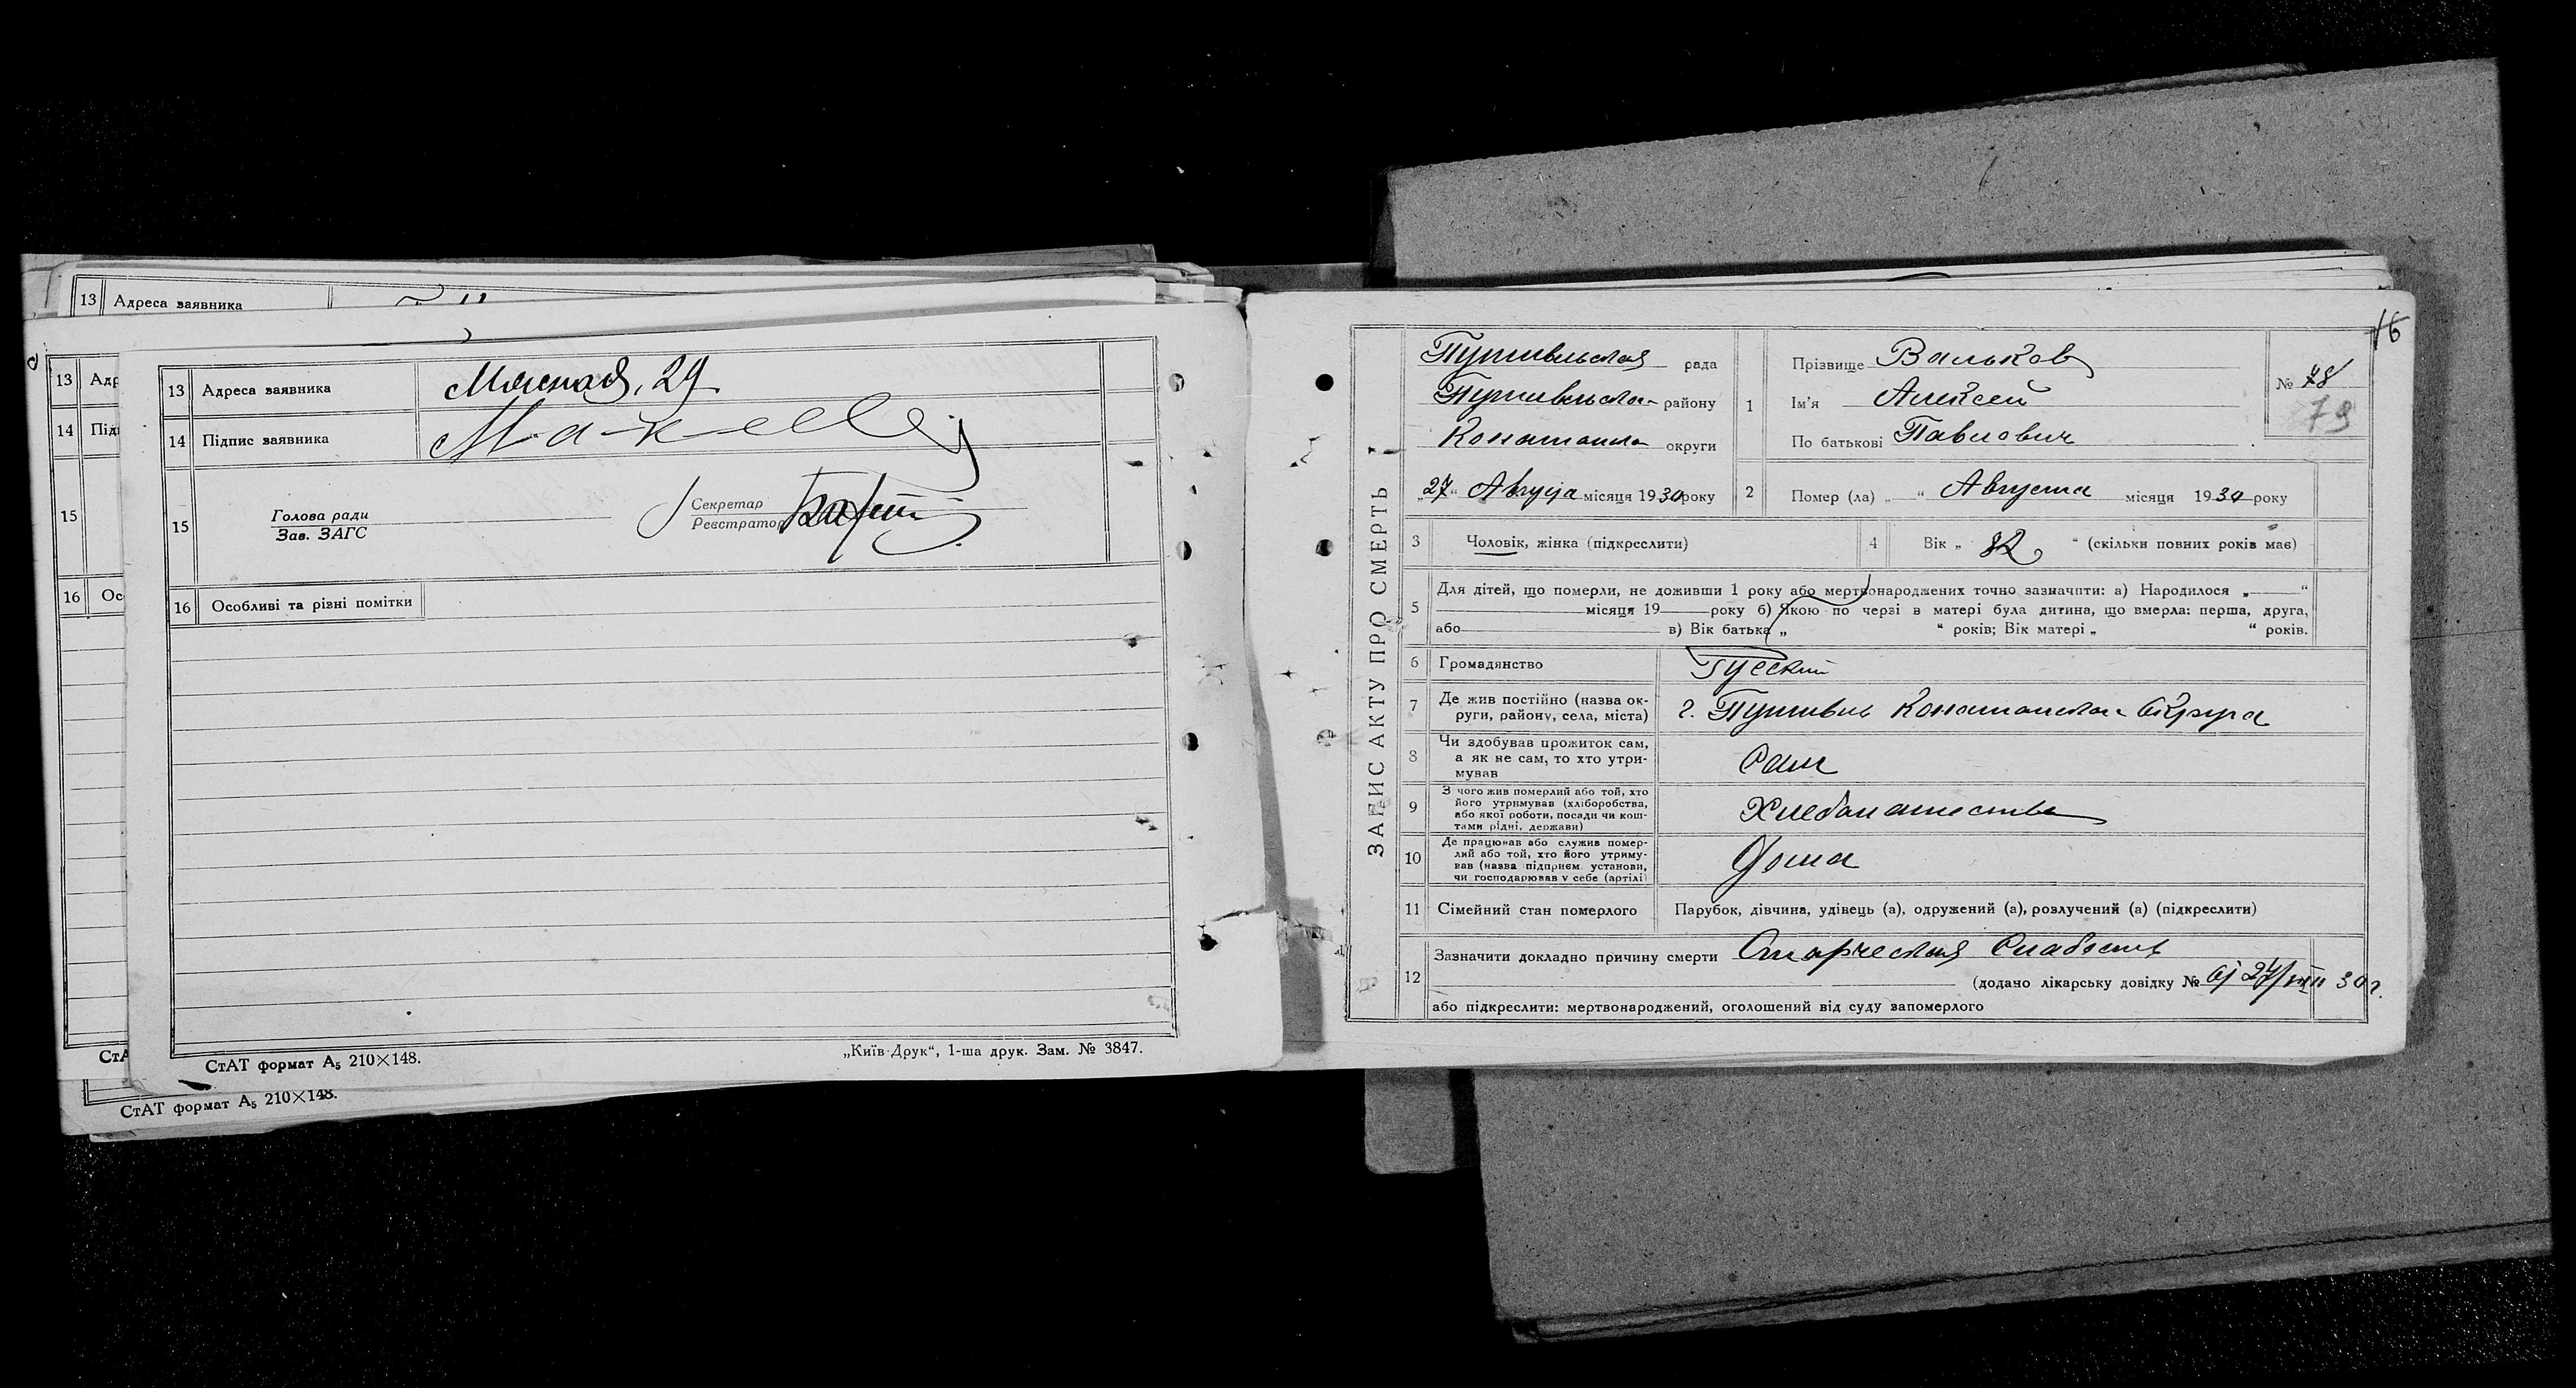 13 Адреса заявника
13 Адр
14 Підп
15
16 Ос
13 Адреса заявника Мясная, 29
14 Підпис заявника
15 Голова ради Секретар
Зав. ЗАГС Реєстратор
16 Особливі та різні помітки
СтАТ формат А5 210×148. „Київ-Друк“, 1-ша друк. Зам. № 3847.
СтАТ формат А5 210×148.
16
ЗАПИС АКТУ ПРО СМЕРТЬ
Путивльская рада
Путивльско- району
Конотопско округи
„27“ Августа місяця 1930 року
1 Прізвище Вальков
Ім'я Алексей
По батькові Павлович
№ 78
79
2 Помер (ла) „ — “ Августа місяця 1930 року
3 Чоловік, жінка (підкреслити)
4 Вік „ 82 “ (скільки повних років має)
5 Для дітей, що померли, не доживши 1 року або мертвонароджених точно зазначити: а) Народилося „ “
місяця 19 року б) Якою по черзі в матері була дитина, що вмерла: перша, друга,
або в) Вік батька „ “ років; Вік матері „ “ років.
6 Громадянство Русский
7 Де жив постійно (назва ок-
руги, району, села, міста) г. Путивль Конотопско- Округа
8 Чи здобував прожиток сам,
а як не сам, то хто утри-
мував Сам
9 З чого жив померлий або той, хто
його утримував (хліборобства,
або якої роботи, посади чи кош-
тами рідні, держави) Хлебопашество
10 Де працював або служив помер-
лий або той, хто його утриму-
вав (назва підприєм. установи,
чи господарював у себе (артілі) Дома
11 Сімейний стан померлого Парубок, дівчина, удівець (а), одружений (а), розлучений (а) (підкреслити)
12 Зазначити докладно причину смерти Старческая Слабость
(додано лікарську довідку № от 27/VIII 30 г.
або підкреслити: мертвонароджений, оголошений від суду запомерлого